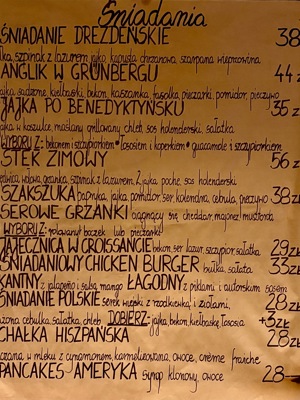 Śniadania
ŚNIADANIE DREZDEŃSKIE 38
szpinak z lazurem, jajko, kapusta chrzanowa, szarpana wieprzowina
ANGLIK W GRÜNBERGU 44 z
jajka sadzone, kiełbaski, bekon, kaszanka, fasolka, pieczarki, pomidor, pieczywo
JAJKA PO BENEDYKTYŃSKU 35 z
jajka w koszulce, maślany grillowany chleb, sos holenderski, sałatka
WYBORU Z: bekonem i szczypiorkiem • łososiem i koperkiem • guacamole i szczypiorkiem
STEK ZIMOWY 56 zł
wołowa, grzanka, szpinak z lazurem, 2 jajka poche, sos holenderski
SZAKSZUKA papryka, jajka, pomidor, ser, kolendra, cebula, pieczywo 38 zł
SEROWE GRZANKI ciągnący się cheddar, majonez, musztarda
WYBORU: rolowany boczek lub pieczarki
JAJECZNICA W CROISSANCIE bekon, ser lazur, szczypior, sałatka 29 zł
ŚNIADANIOWY CHICKEN BURGER bułka, sałata 33 zł
KANTNY z jalapeño i salsą mango ŁAGODNY z piklami i autorskim sosem
ŚNIADANIE POLSKIE serek wiejski z rzodkiewką i ziołami, 28 zł
cebula, sałatka, chleb DOBIERZ: jajka, bekon, kiełbaskę, łososia +3 zł
CHAŁKA HISZPAŃSKA 28 zł
w mleku z cynamonem, karmelizowana, owoce, crème fraîche
PANCAKES AMERYKA syrop klonowy, owoce 28 z